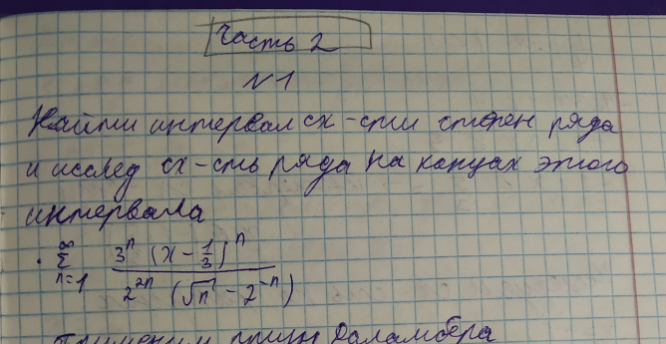 Часть 2
№1
Найти интервал сх-сти степен ряда
и исслед сх-сть ряда на концах этого
интервала
. ∑_{n=1}^{∞} \frac{3^n (x - \frac{1}{3})^n}{2^{2n} (\sqrt{n} - 2^{-n})}
Применим призн Даламбера